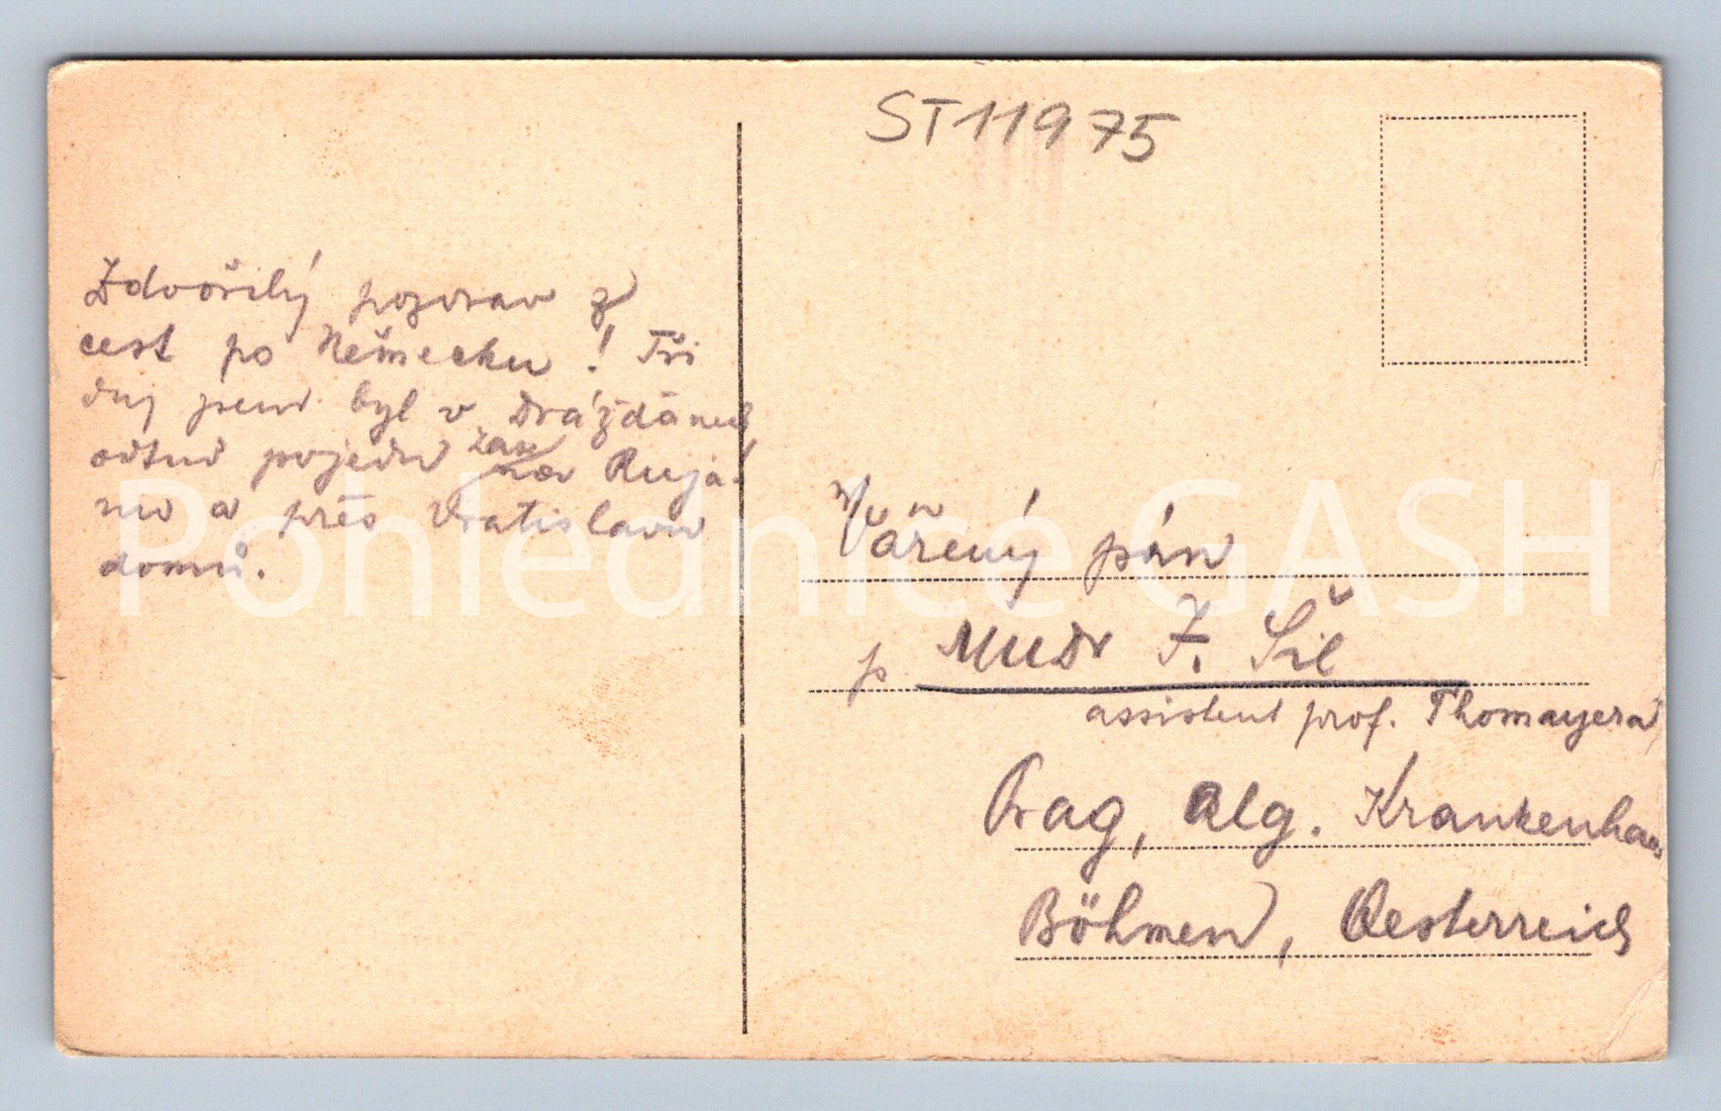 ST11975
Zdvořilý pozdrav z
cest po Německu! Tři
dny jsem byl v Drážďanech,
odtud pojedu zase na Rujá-
nu a přes Vratislavu
domů.
Vážený pán
p MUDr F. Šíl
assistent prof. Thomayera
Prag, Alg. Krankenhaus
Böhmen, Oesterreich
Pohlednice GASH